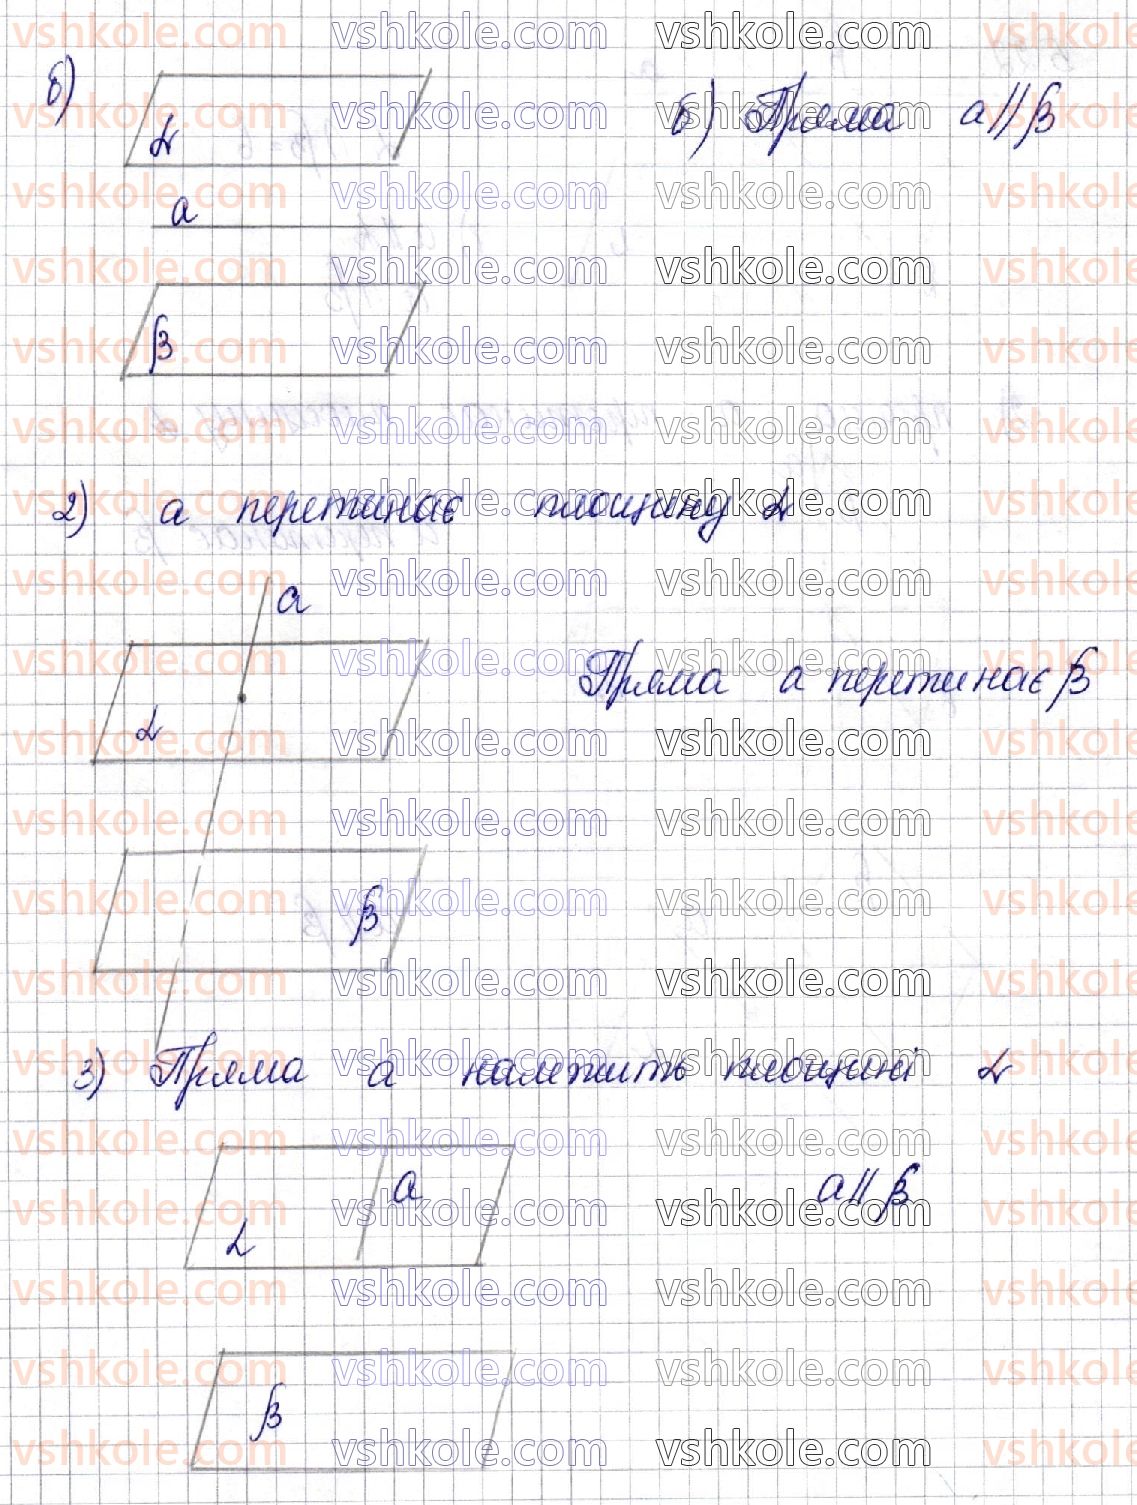 б)
α
а
β
б) Пряма а || β
2) а перетинає площину α
а
α
Пряма а перетинає β
β
3) Пряма а належить площині α
а
α
а || β
β
vshkole.com